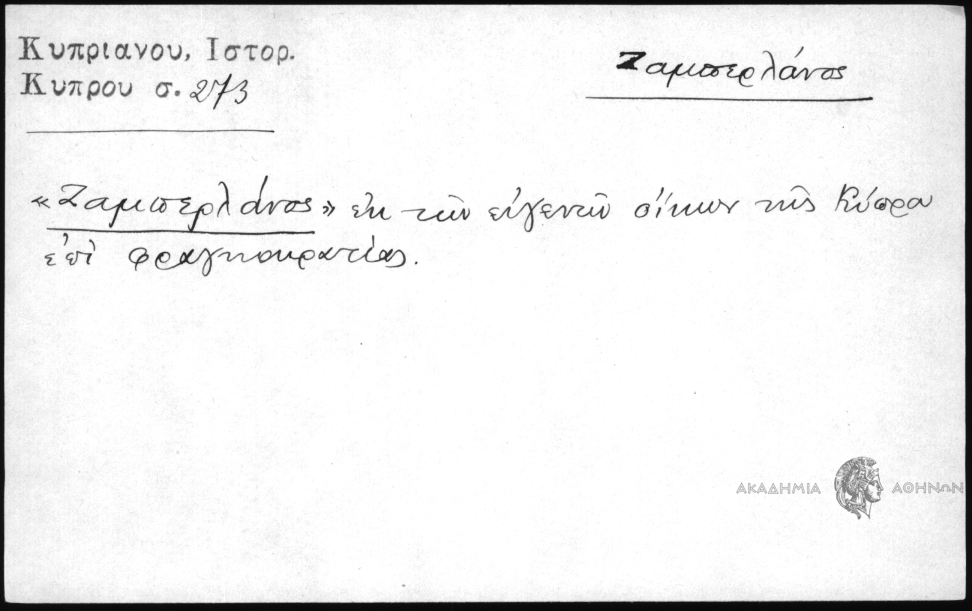 Κυπριανου, Ιστορ.
Κυπρου σ. 273
Ζαμπερλάνος
«Ζαμπερλάνος» ἐκ τῶν εὐγενῶν οἴκων τῆς Κύπρου
ἐπὶ φραγκοκρατίας.
ΑΚΑΔΗΜΙΑ ΑΘΗΝΩΝ